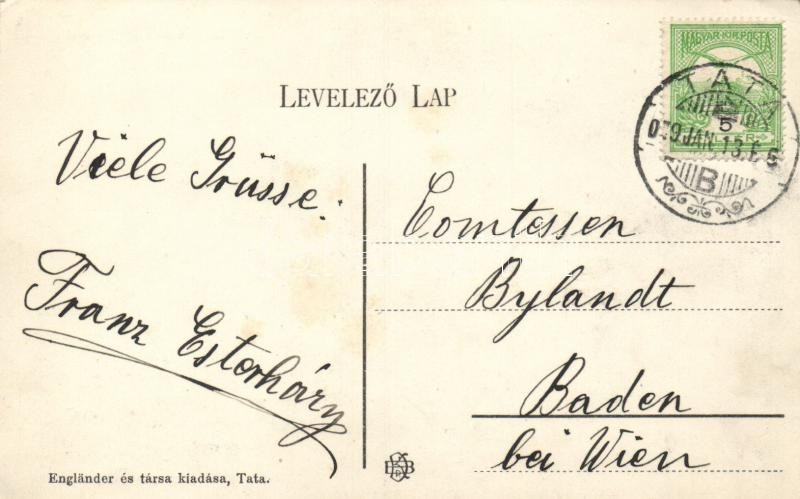 MAGYAR KIR. POSTA
TATA
5
JAN. 13.
B
LEVELEZŐ LAP
Viele Grüsse.
Franz Esterházy
Comtessen
Bylandt
Baden
bei Wien
Engländer és társa kiadása, Tata.